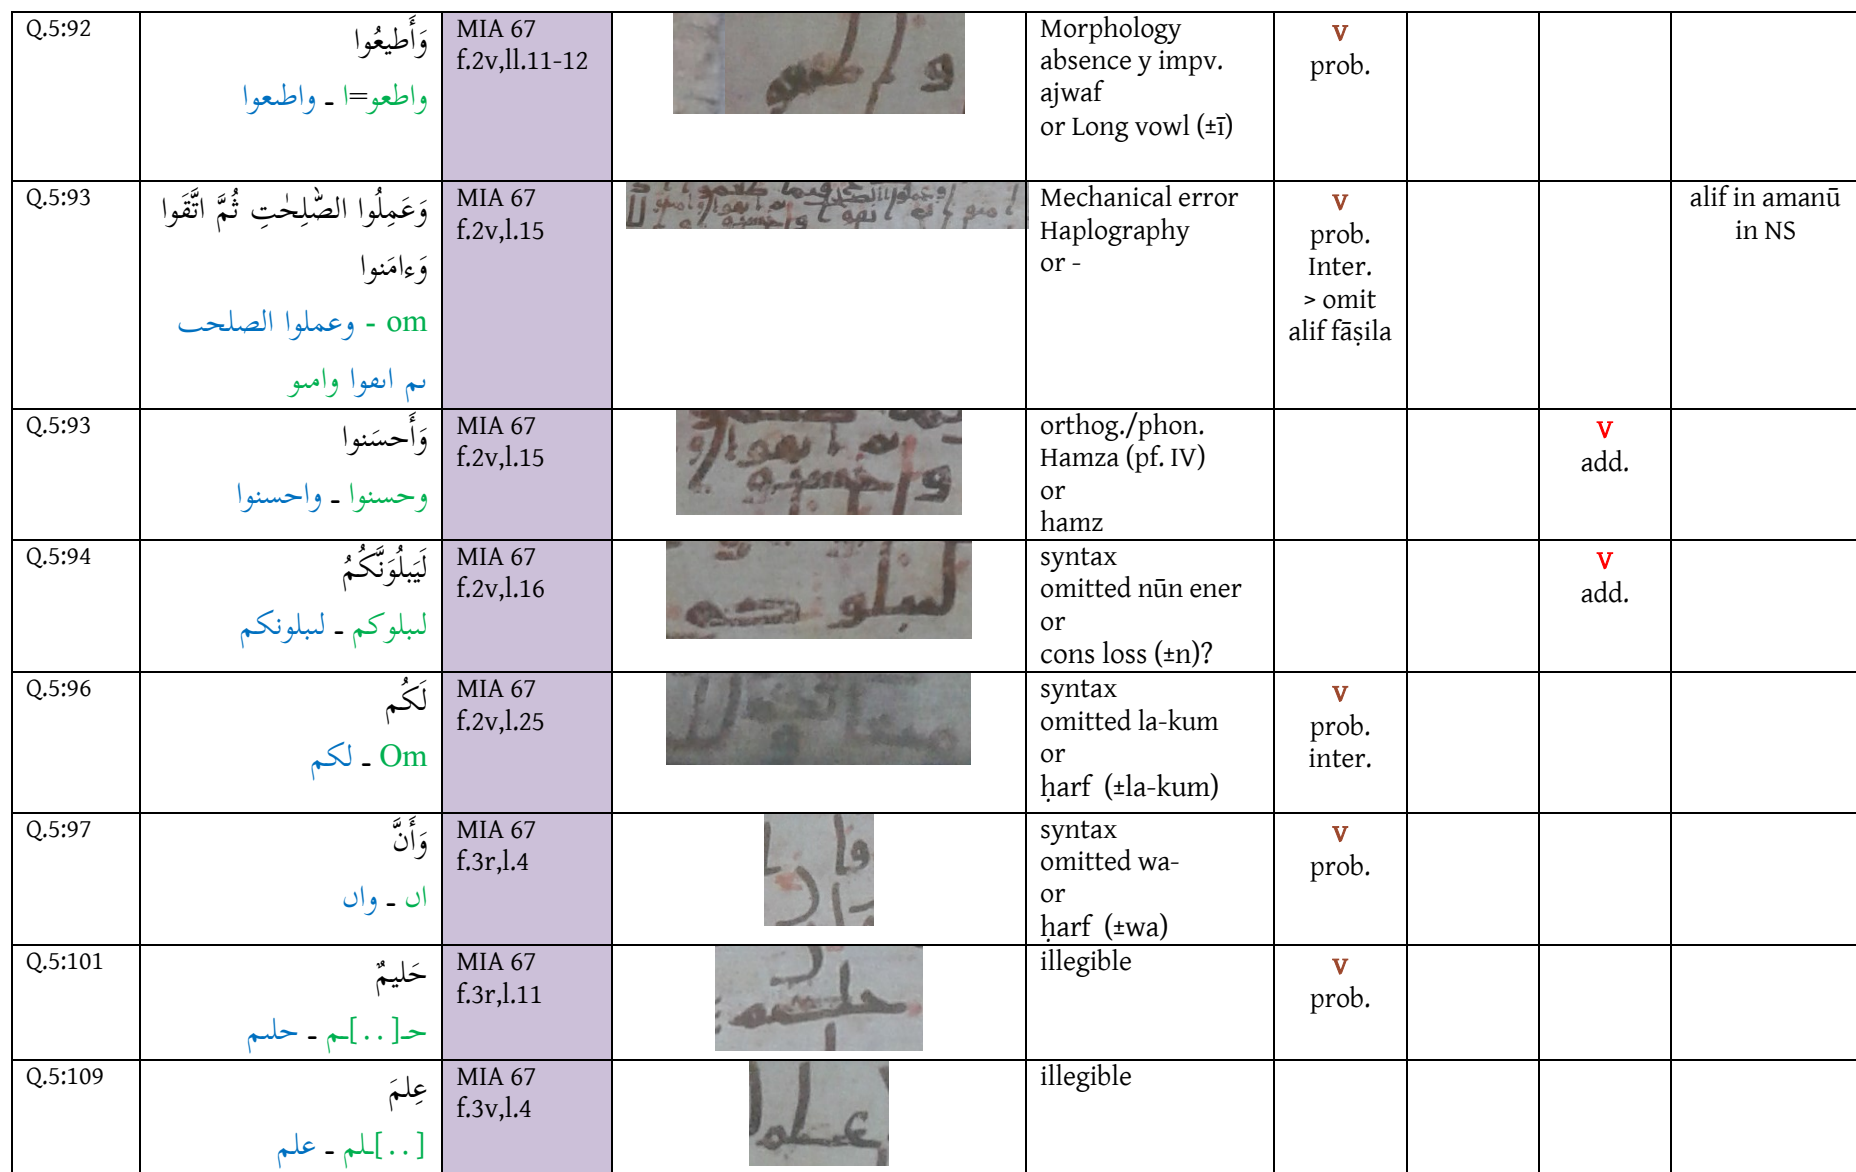 Q.5:92
وَأَطيعُوا
واطعو=ا ـ واطىعوا
MIA 67
f.2v,ll.11-12
Morphology
absence y impv.
ajwaf
or Long vowl (±ī)
v
prob.
Q.5:93
وَعَمِلُوا الصّٰلِحٰتِ ثُمَّ اتَّقَوا
وَءامَنوا
om - وعملوا الصلحت
ىم اىڡوا وامىو
MIA 67
f.2v,l.15
Mechanical error
Haplography
or -
v
prob.
Inter.
> omit
alif fāṣila
alif in amanū
in NS
Q.5:93
وَأَحسَنوا
وحسنوا ـ واحسنوا
MIA 67
f.2v,l.15
orthog./phon.
Hamza (pf. IV)
or
hamz
v
add.
Q.5:94
لَيَبلُوَنَّكُمُ
لىبلوكم ـ لىبلونكم
MIA 67
f.2v,l.16
syntax
omitted nūn ener
or
cons loss (±n)?
v
add.
Q.5:96
لَكُم
Om ـ لكم
MIA 67
f.2v,l.25
syntax
omitted la-kum
or
ḥarf (±la-kum)
v
prob.
inter.
Q.5:97
وَأَنَّ
اں ـ واں
MIA 67
f.3r,l.4
syntax
omitted wa-
or
ḥarf (±wa)
v
prob.
Q.5:101
حَليمٌ
حـ[..]ـم ـ حلىم
MIA 67
f.3r,l.11
illegible
v
prob.
Q.5:109
عِلمَ
[..]ـلم ـ علم
MIA 67
f.3v,l.4
illegible